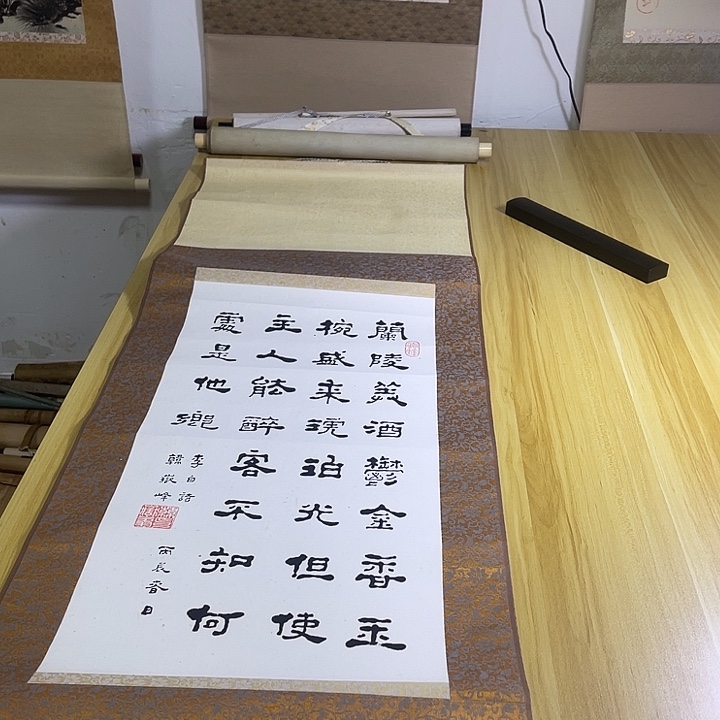 蘭陵美酒鬱金香玉
椀盛来琥珀光但使
主人能醉客不知何
處是他鄉
李白詩
韓峰
丙辰春日